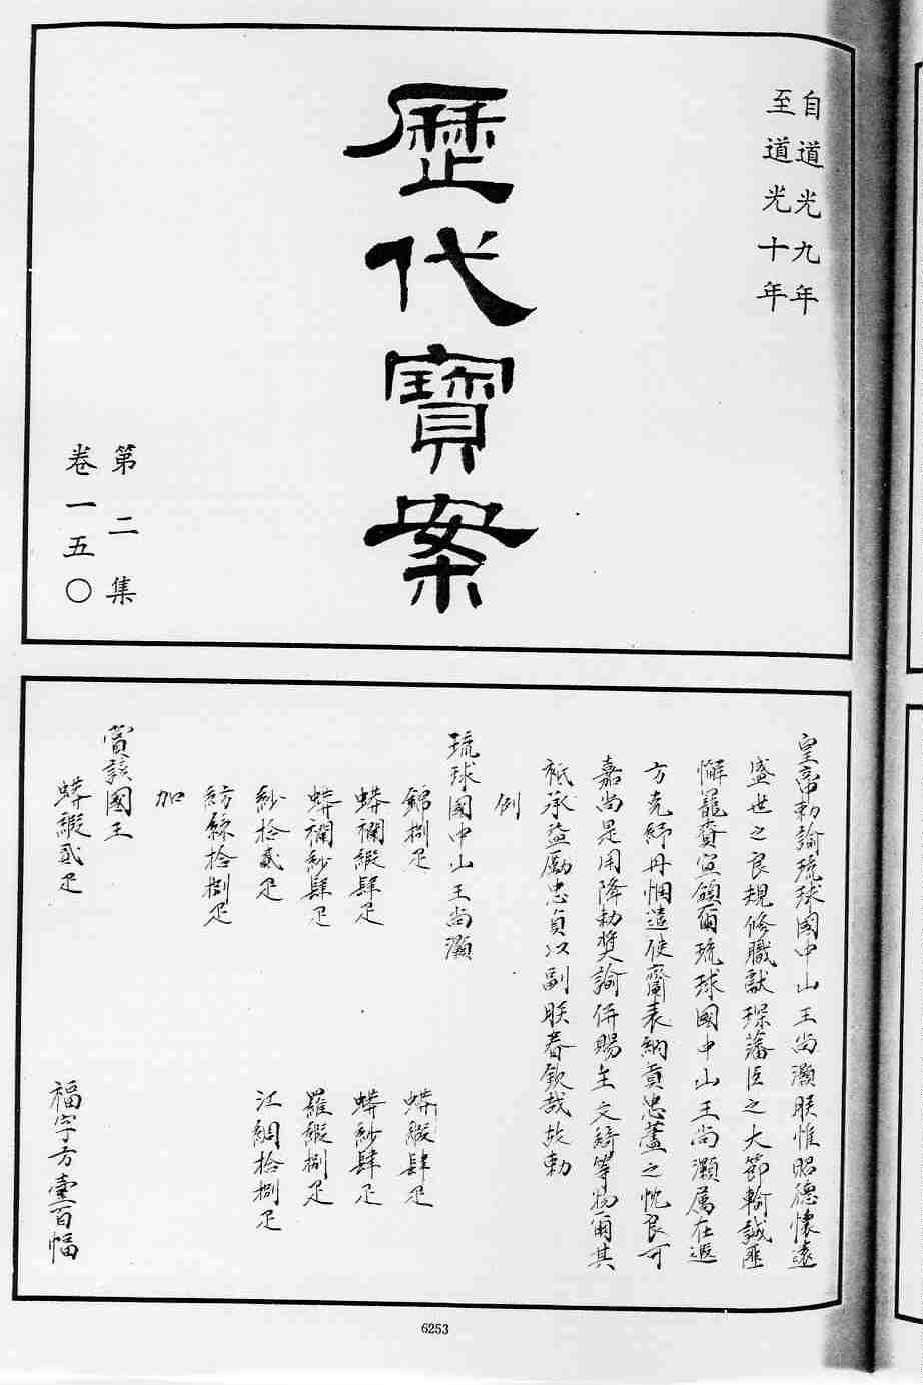 自道光九年
至道光十年
歷代寶案
第二集
卷一五〇
皇帝勅諭琉球國中山王尚灝朕惟昭德懷遠
盛世之良規修職獻琛藩臣之大節輸誠匪
懈寵賚宜頒爾琉球國中山王尚灝属在遐
方克紓丹悃遣使齎表納貢忠藎之忱良可
嘉尚是用降勅奬諭併賜王文綺等物爾其
祗承益勵忠貞以副朕眷欽哉故勅
例
琉球國中山王尚灝
錦捌疋 蟒緞肆疋
蟒襴緞肆疋 蟒紗肆疋
蟒襴紗肆疋 羅緞捌疋
紗拾貳疋 江綢拾捌疋
紡絲拾捌疋
加
賞該國王
蟒緞貳疋 福字方壹百幅
6253